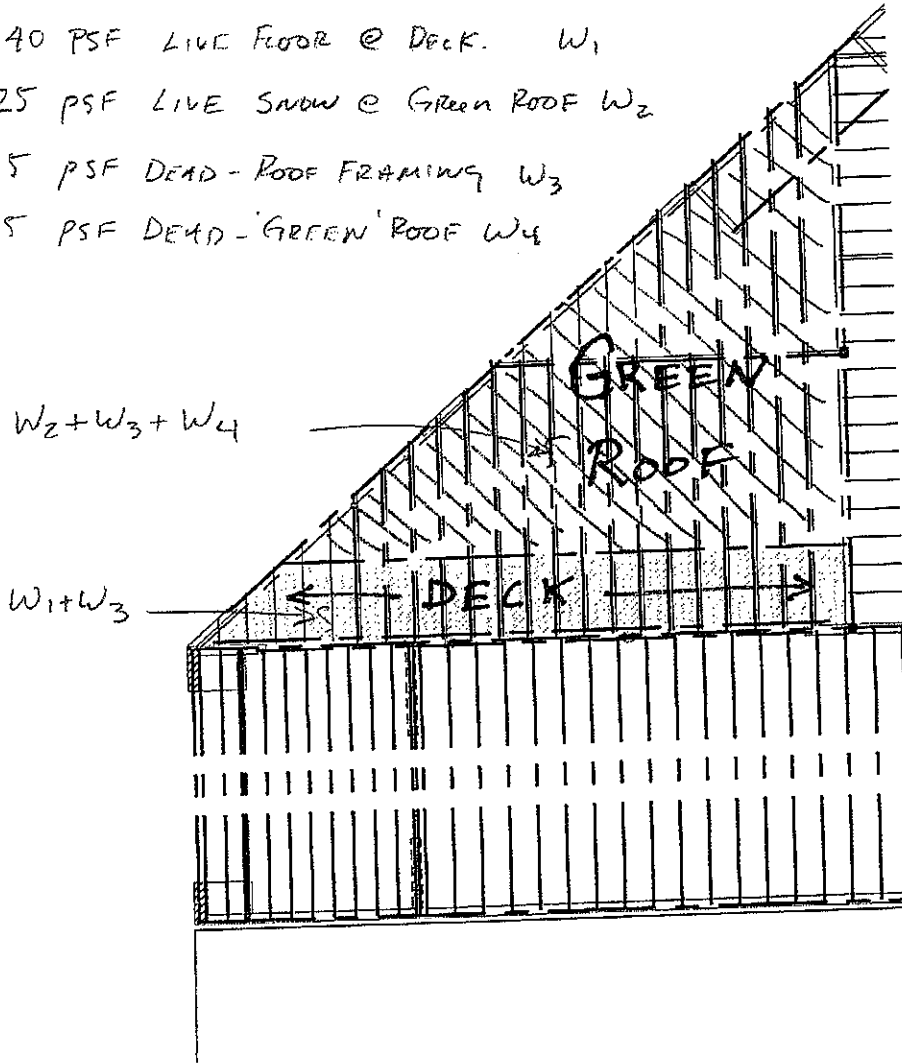 40 PSF LIVE FLOOR @ DECK. W1
25 PSF LIVE SNOW @ GREEN ROOF W2
5 PSF DEAD - ROOF FRAMING W3
5 PSF DEAD - 'GREEN' ROOF W4
GREEN
W2+W3+W4
ROOF
W1+W3
DECK